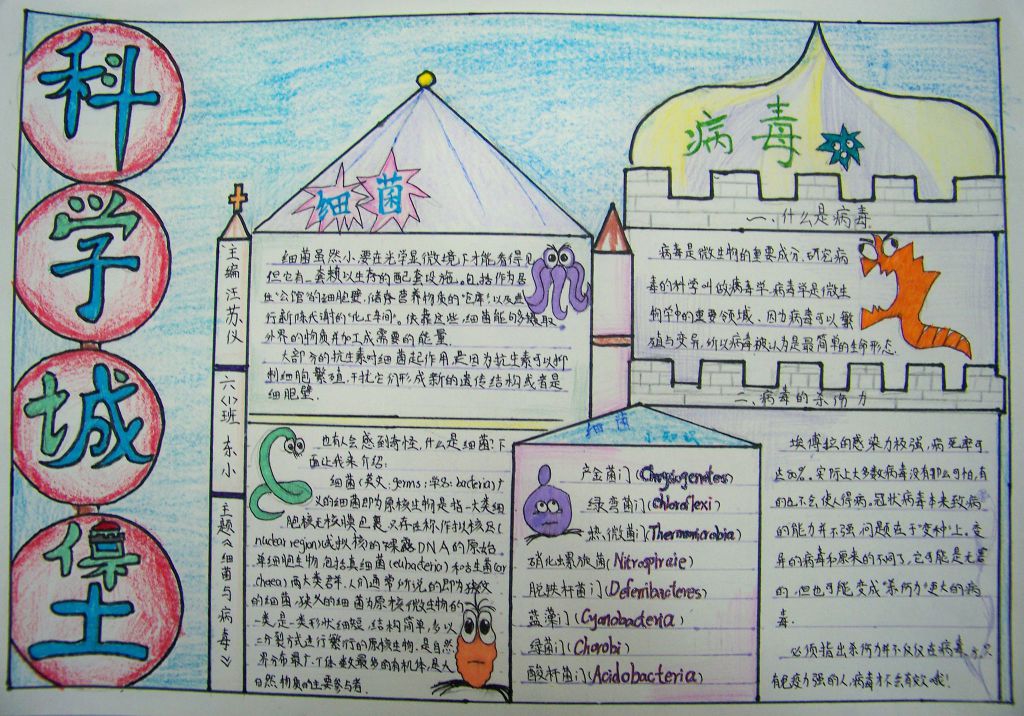 科
学
城
堡
主编汪苏仪
六〈1〉班
东小
主题《细菌与病毒》
细菌
细菌虽然小,要在光学显微境下才能看得见
但它有一套赖以生存的配套设施。包括作为居
住"公馆"的细胞壁,储存营养物质的"仓库"以及进
行新陈代谢的"化工车间"。依靠这些,细菌能够摄取
外界的物质并加工成需要的能量.
大部分的抗生素对细菌起作用是因为抗生素可以抑
制细胞繁殖,干扰它们形成新的遗传结构或者是
细胞壁.
也有人会感到奇怪,什么是细菌?下
面让我来介绍:
细菌(英文:germs;学名:bacteria)广
义的细菌即为原核生物是指一大类
胞核无核膜包裹,只存在称作拟核区(
nuclear region)(或拟核)的裸露DNA的原始
单细胞生物,包括真细菌(eubacteria)和古生菌(ar
chaea)两大类群.人们通常所说的即为狭义
的细菌,狭义的细菌为原核微生物的
一类,是一类形状细短,结构简单,多以
二分裂方式进行繁衍的原核生物,是自然
界分布最广、个体数最多的有机体,是大
自然物质的主要参与者.
细菌
小知识
产金菌门(Chrysiogenetes)
绿弯菌门(Chloroflexi)
热微菌门(Thermomicrobia)
硝化螺旋菌(Nitrospirate)
脱铁杆菌门(Deferribacteres)
蓝藻门(Cyanobacteria)
绿菌门(Chorobi)
酸杆菌门(Acidobacteria)
病毒
一、什么是病毒
病毒是微生物的重要成分,研究病
毒的科学叫做病毒学.病毒学是微生
物学中的重要领域.因为病毒可以繁
殖与变异,所以病毒被认为是最简单的生命形态.
二、病毒的杀伤力
埃博拉的感染力极强,病死率可
达80%.实际上大多数病毒没有那么可怕,有
的也不会使人得病.冠状病毒本来致病
的能力并不强,问题在于"变种"上.变
异的病毒和原来的不同了,它可能是无害
的,但也可能变成"杀伤力"更大的病
毒.
必须指出杀伤力并不仅仅在病毒.
有免疫力强的人,病毒才不会有效哦!